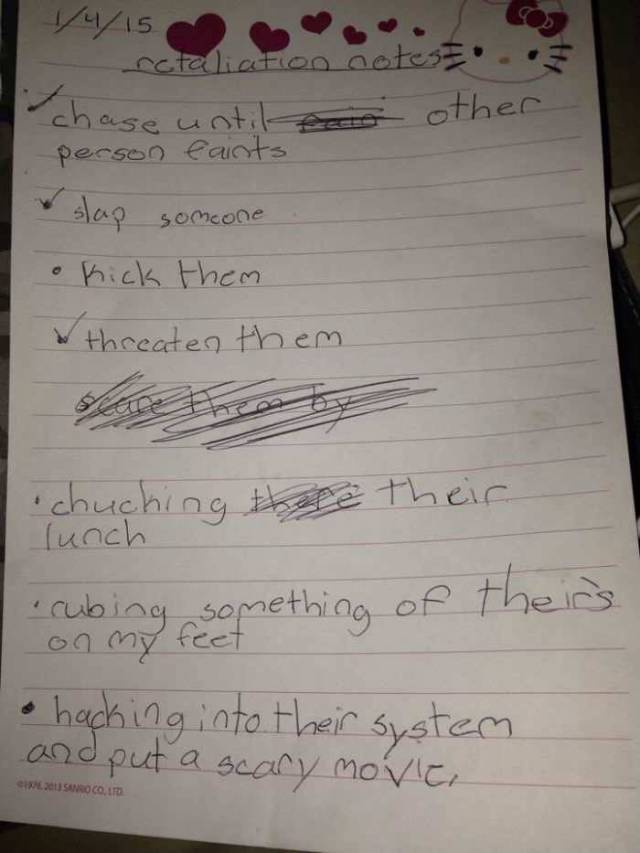 1/4/15
retaliation notes
chase until other
person faints
slap someone
• kick them
threaten them
scare them by
• chuching there their
lunch
• rubing something of their's
on my feet
• hacking into their system
and put a scary movie,
©1976, 2013 SANRIO CO., LTD.